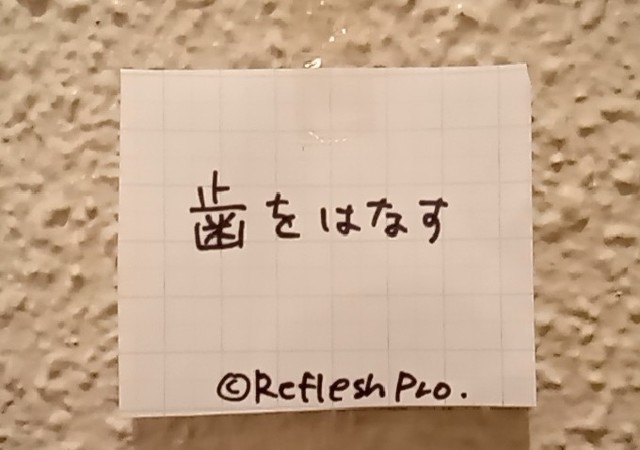 歯をはなす
©Reflesh Pro.